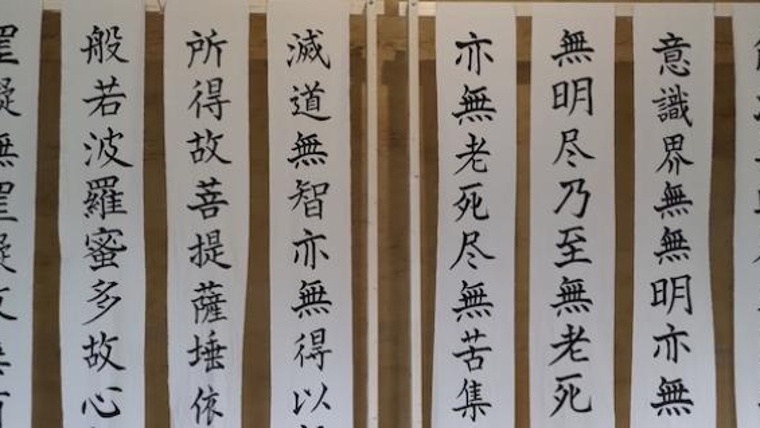 意識界無無明亦無
無明尽乃至無老死
亦無老死尽無苦集
滅道無智亦無得以
所得故菩提薩埵依
般若波羅蜜多故心